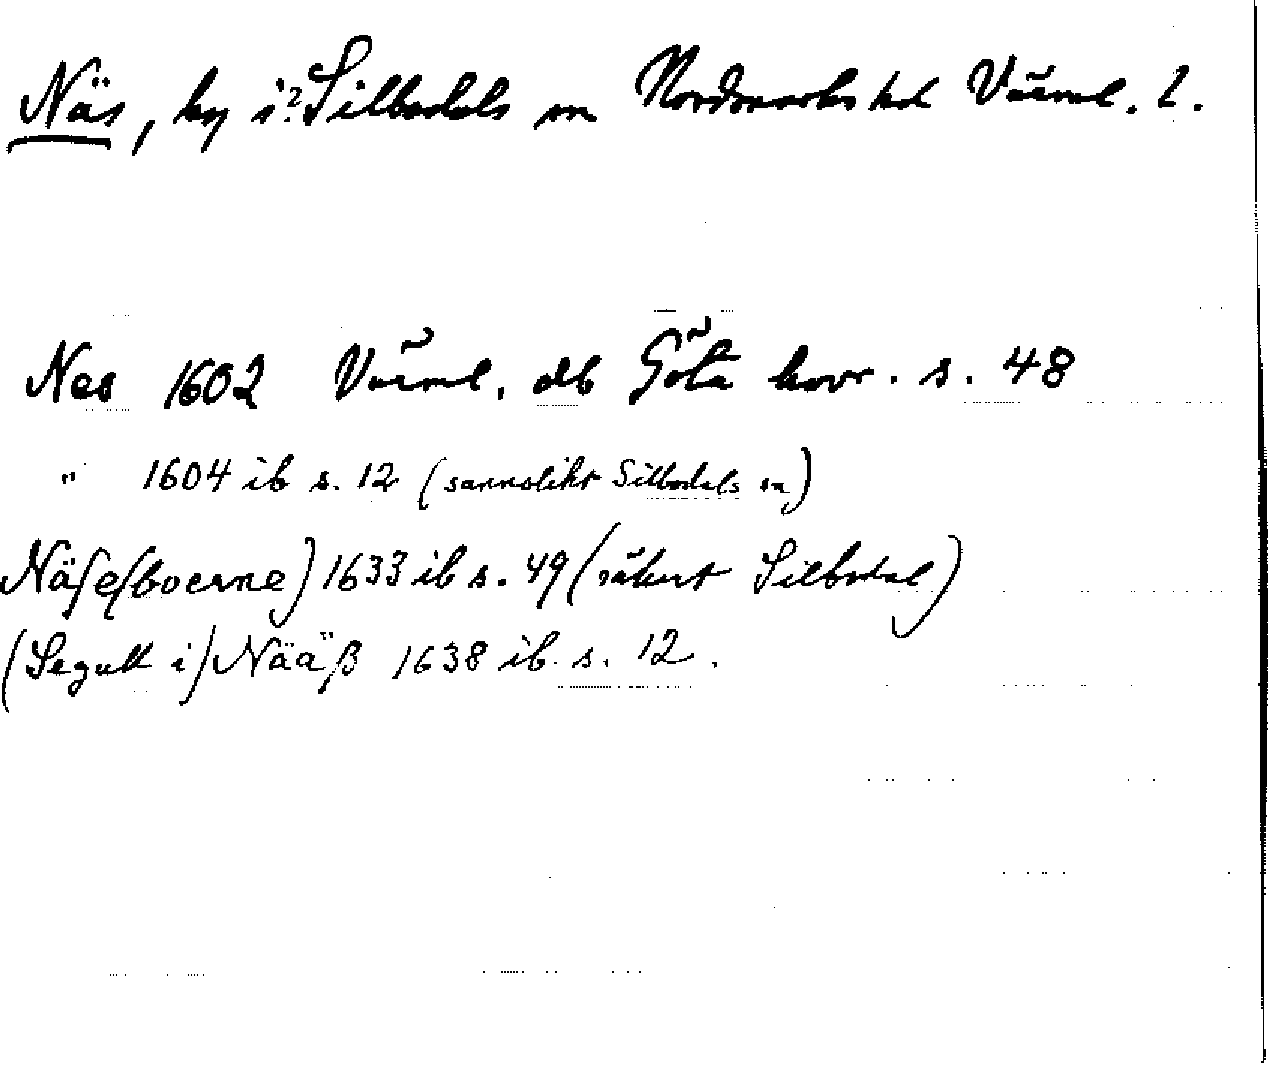 Näs, by i? Silbodals sn Nordmarks hd Värml. l.
Nes 1602 Värml. db Göta hovr. s. 48
" 1604 ib s. 12 (sannolikt Silbodals sn)
Näſe(boerne) 1633 ib s. 49 (säkert Silbodal)
(Segutt i) Nääß 1638 ib. s. 12.